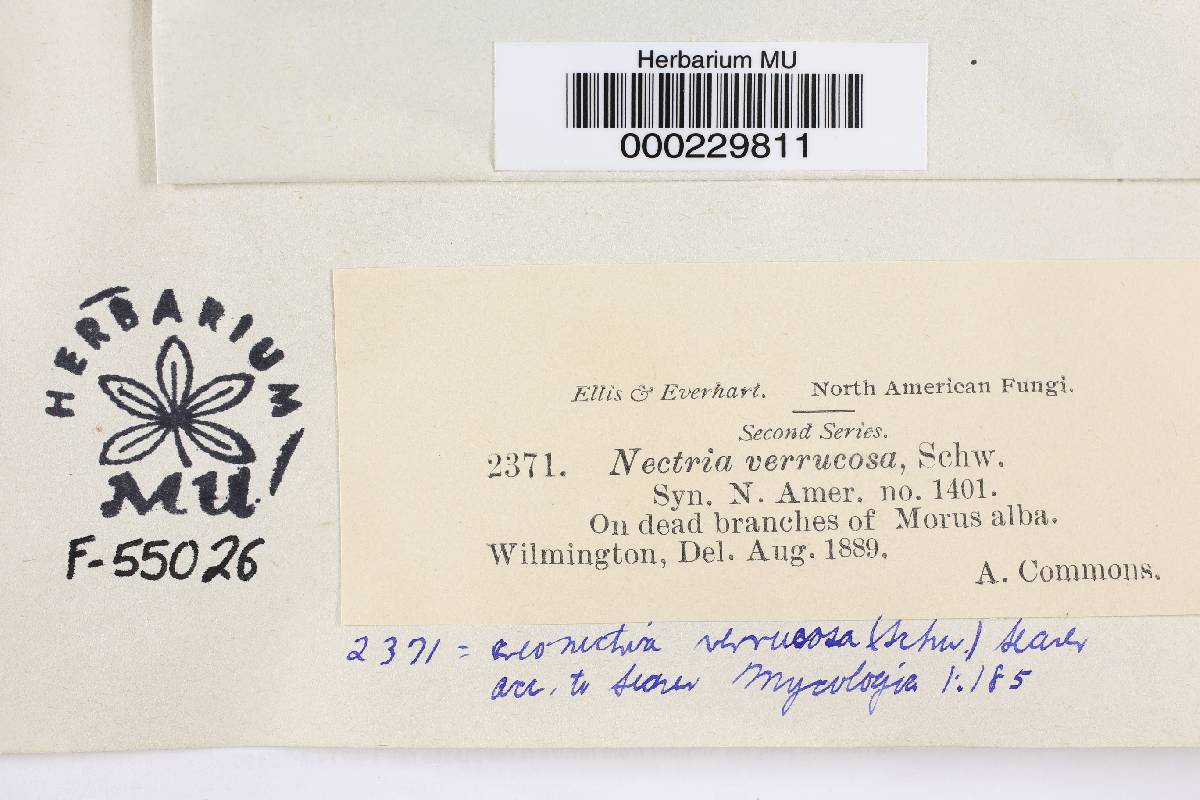 Herbarium MU
000229811
HERBARIUM
MU
F-55026
Ellis & Everhart. North American Fungi.
Second Series.
2371. Nectria verrucosa, Schw.
Syn. N. Amer. no. 1401.
On dead branches of Morus alba.
Wilmington, Del. Aug. 1889.
A. Commons.
2371 = Creonectria verrucosa (Schw.) Seaver
acc. to Seaver Mycologia 1:185